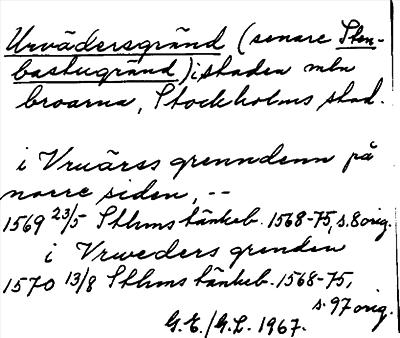 Urvädersgränd (senare Sten-
bastugränd) i staden mln
broarna, Stockholms stad.
i Vruärss grenndenn på
norre siden, --
1569 23/5 Sthms tänkeb. 1568-75, s. 8 orig.
i Vrweders grenden
1570 13/8 Sthms tänkeb. 1568-75,
s. 97 orig.
G.E./G.L. 1967.